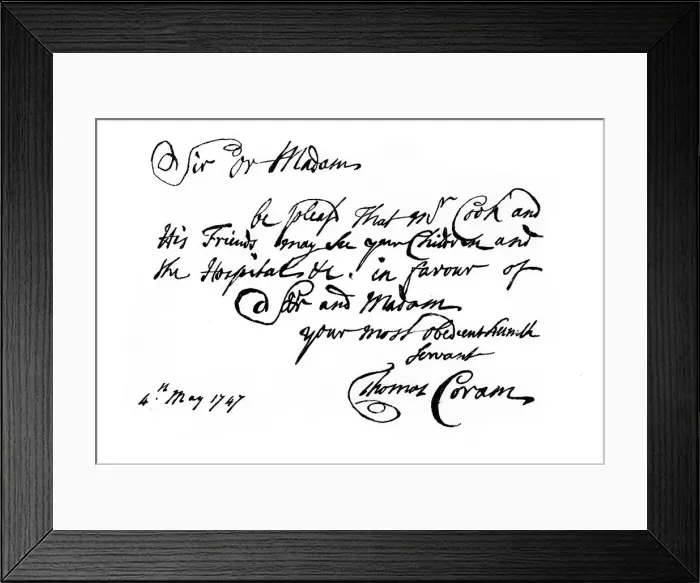 Sir or Madam
be pleas'd That Mr Cook and
His Friends may see your Children and
the Hospital &c. in favour of
Sir and Madam
your most obedient humble
Servant
Thomas Coram
4.th May 1747